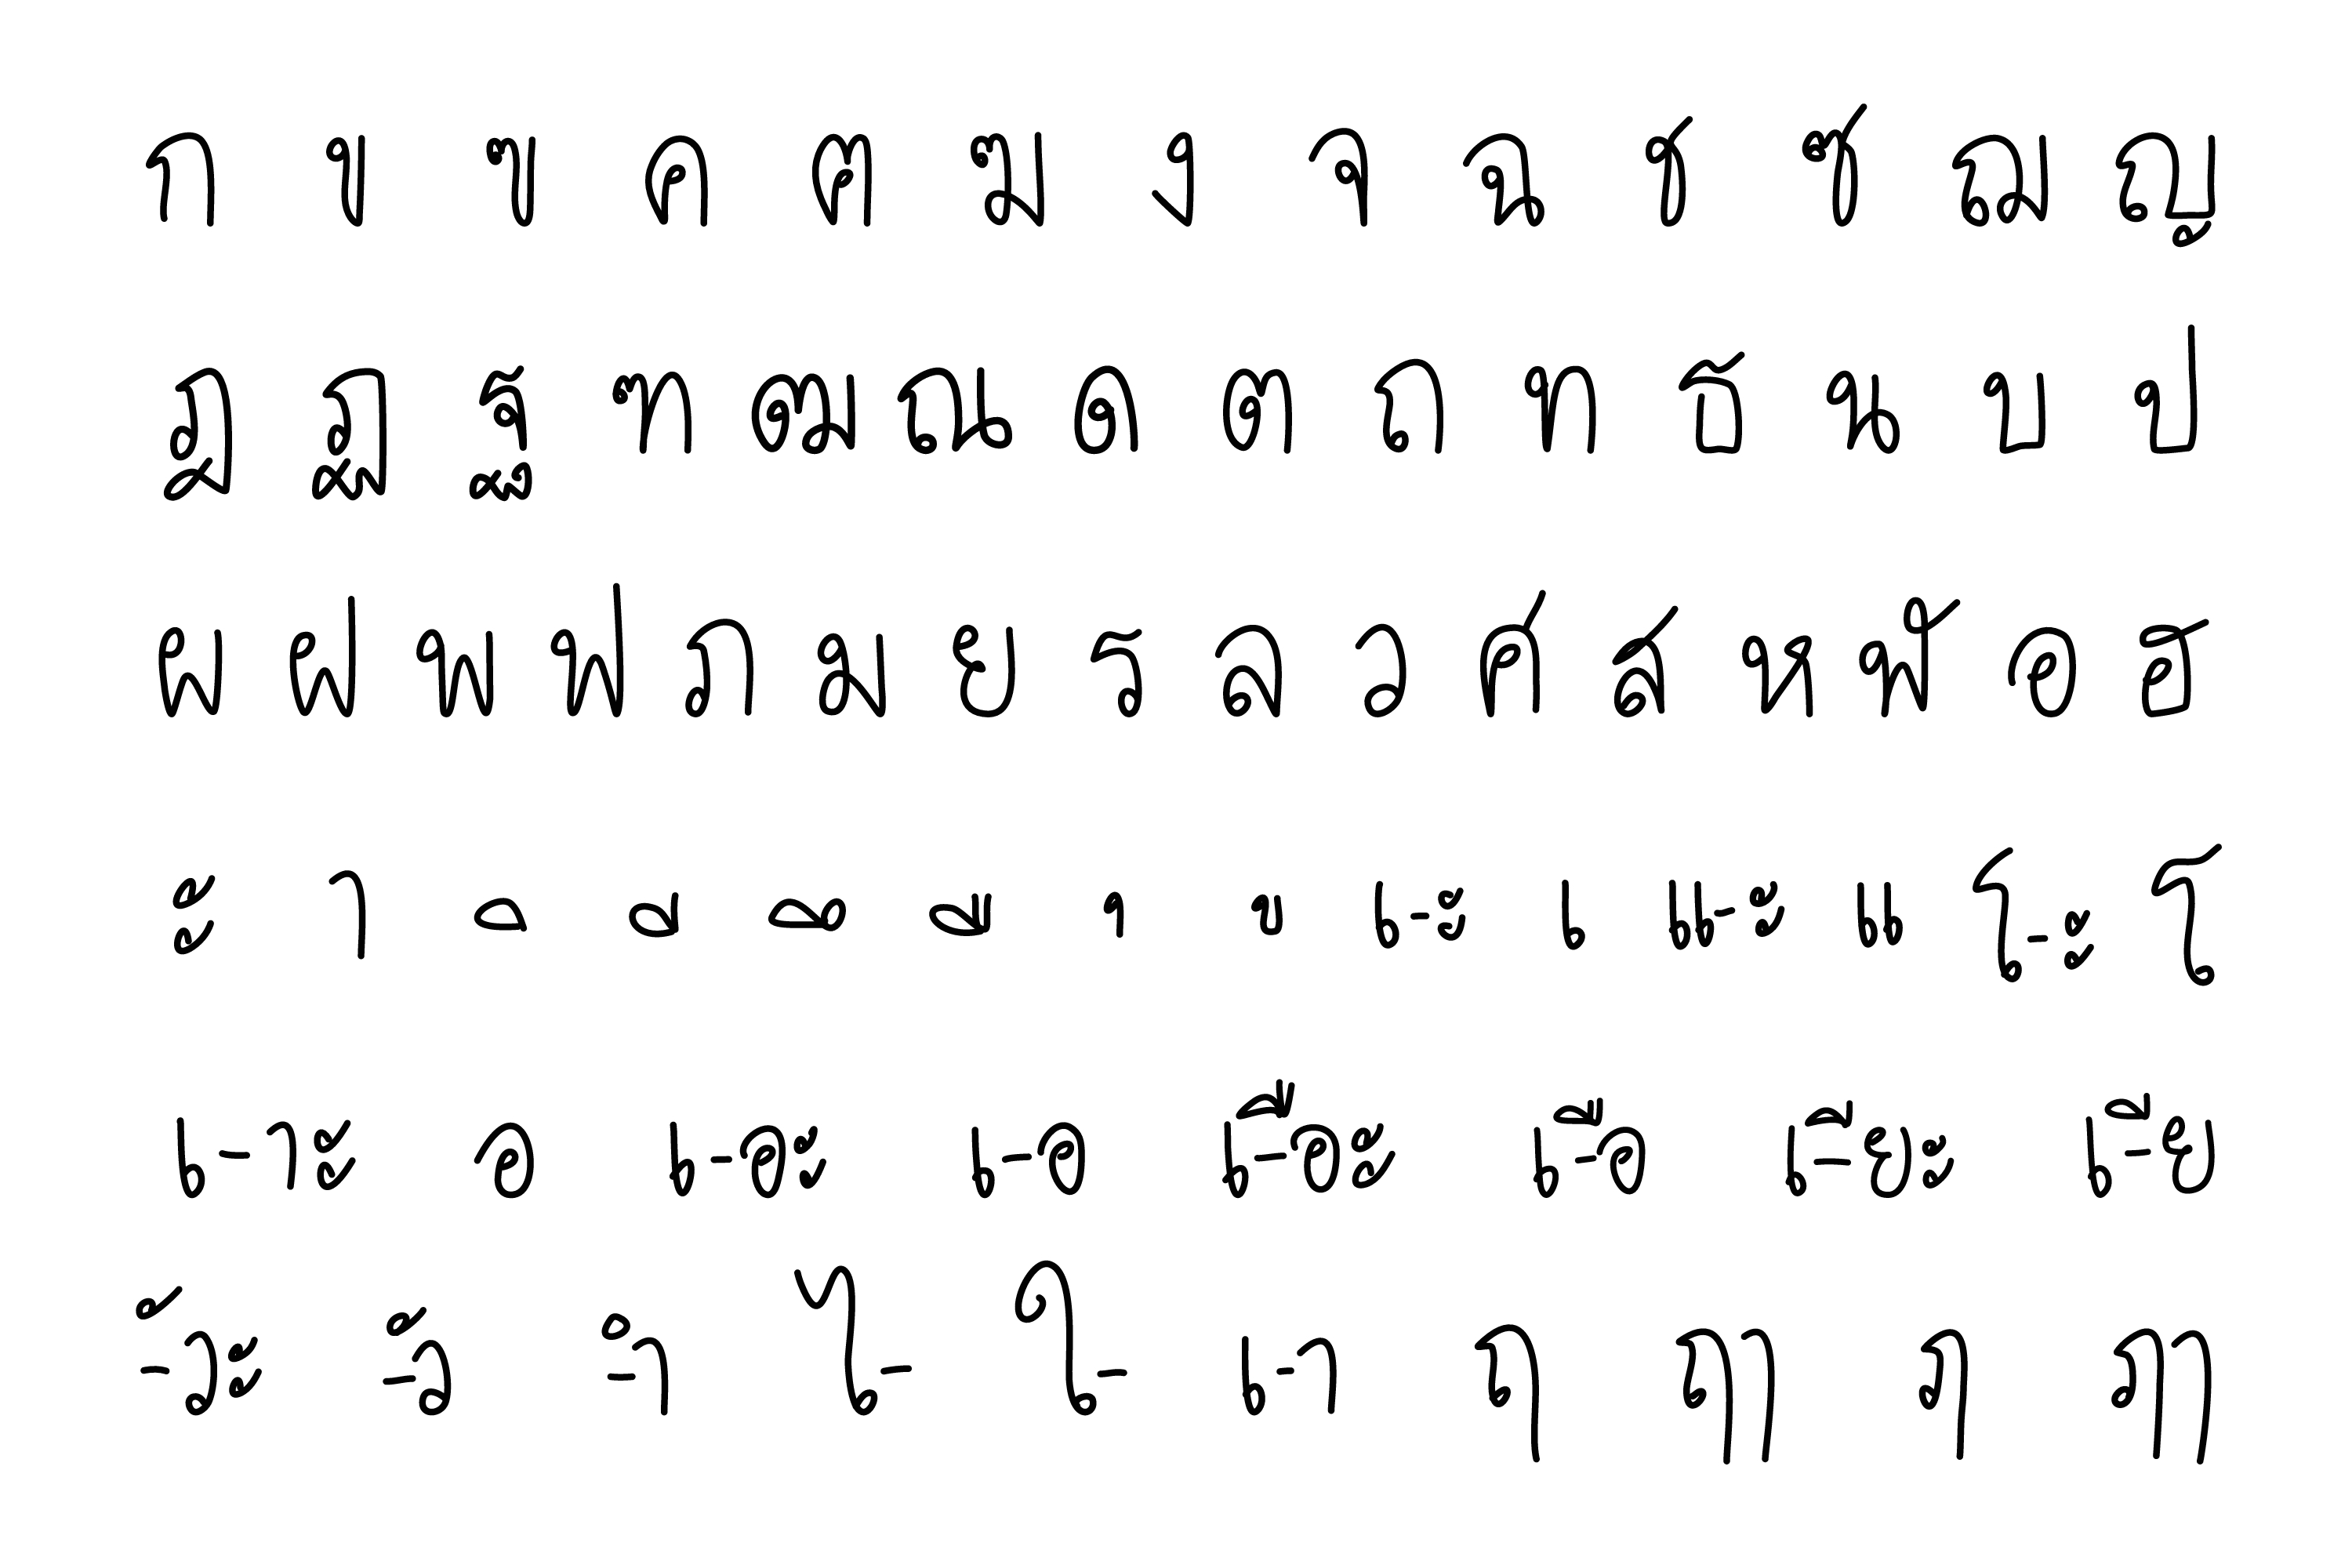 ก ข ฃ ค ฅ ฆ ง จ ฉ ช ซ ฌ ญ
ฎ ฏ ฐ ฑ ฒ ณ ด ต ถ ท ธ น บ ป
ผ ฝ พ ฟ ภ ม ย ร ล ว ศ ส ห ฬ อ ฮ
ะ า ิ ี ึ ื ุ ู เ-ะ เ แ-ะ แ โ-ะ โ
เ-าะ อ เ-อะ เ-อ เ-ือะ เ-ือ เ-ียะ เ-ีย
-ัวะ -ัว -ำ ไ- ใ- เ-า ฤ ฤๅ ฦ ฦๅ